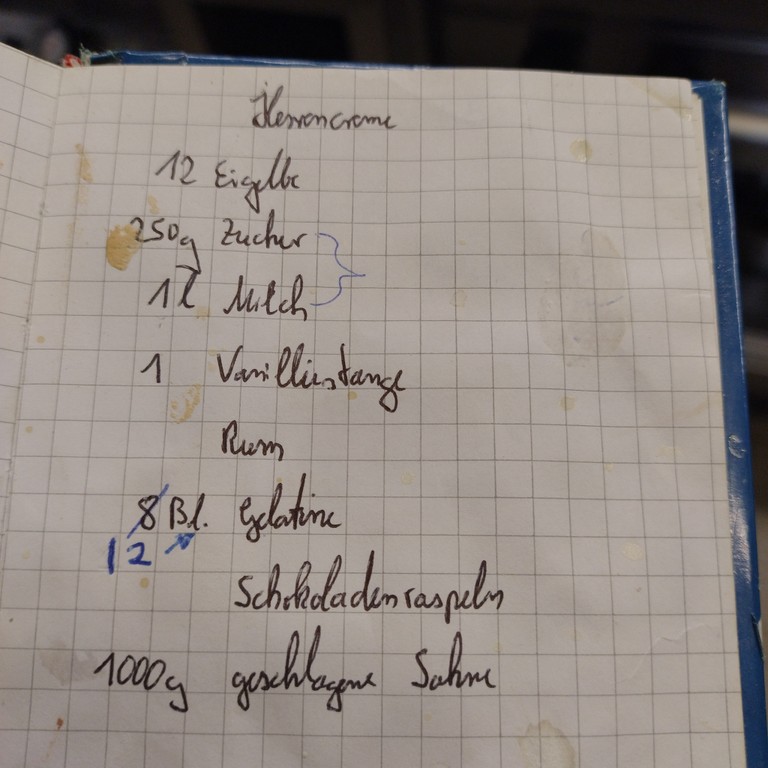 Herrencreme
12 Eigelbe
250g Zucker
1l Milch
1 Vanilliestange
Rum
8 Bl. Gelatine
12
Schokoladenraspeln
1000g geschlagene Sahne